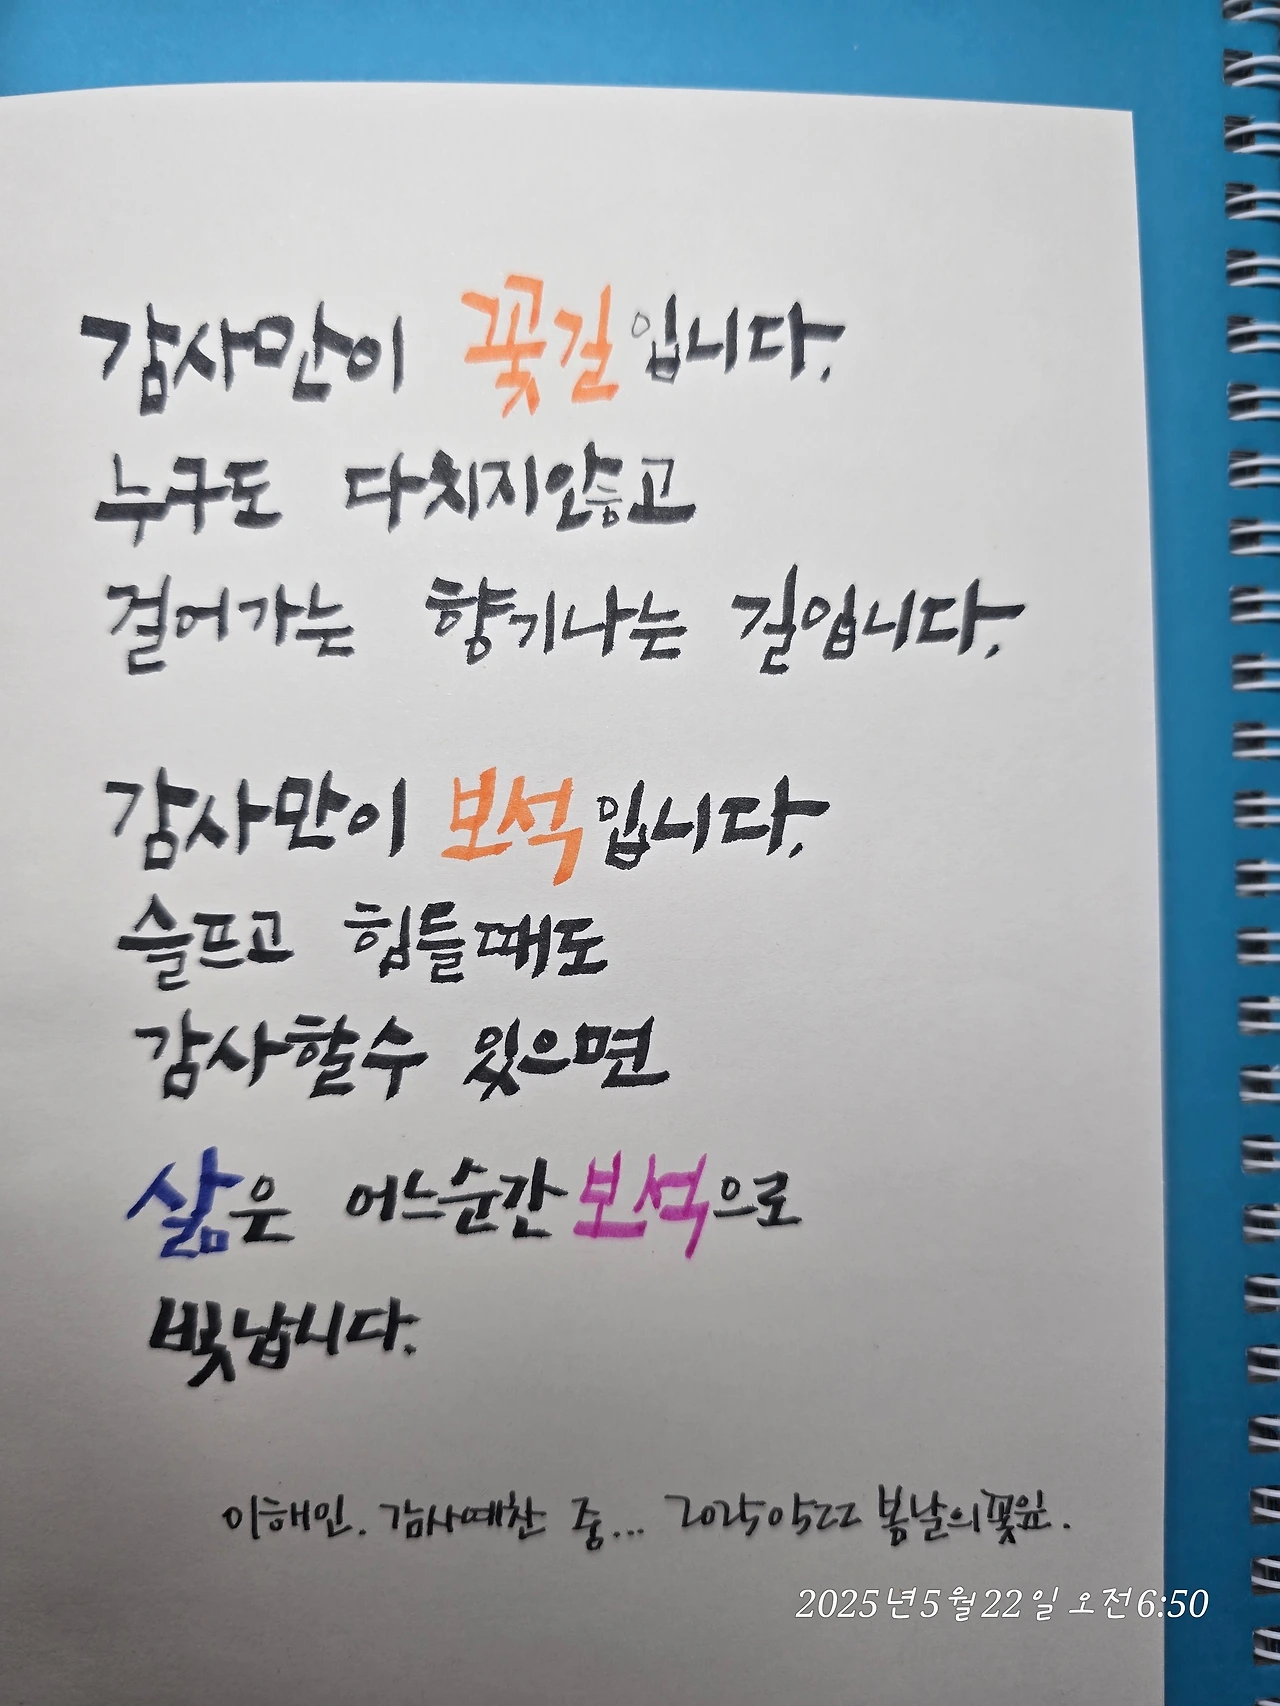 감사만이 꽃길입니다.
누구도 다치지않고
걸어가는 향기나는 길입니다.
감사만이 보석입니다.
슬프고 힘들때도
감사할수 있으면
삶은 어느순간 보석으로
빛납니다.
이해인. 감사예찬 중... 20250522 봄날의꽃잎.
2025년5월22일 오전6:50